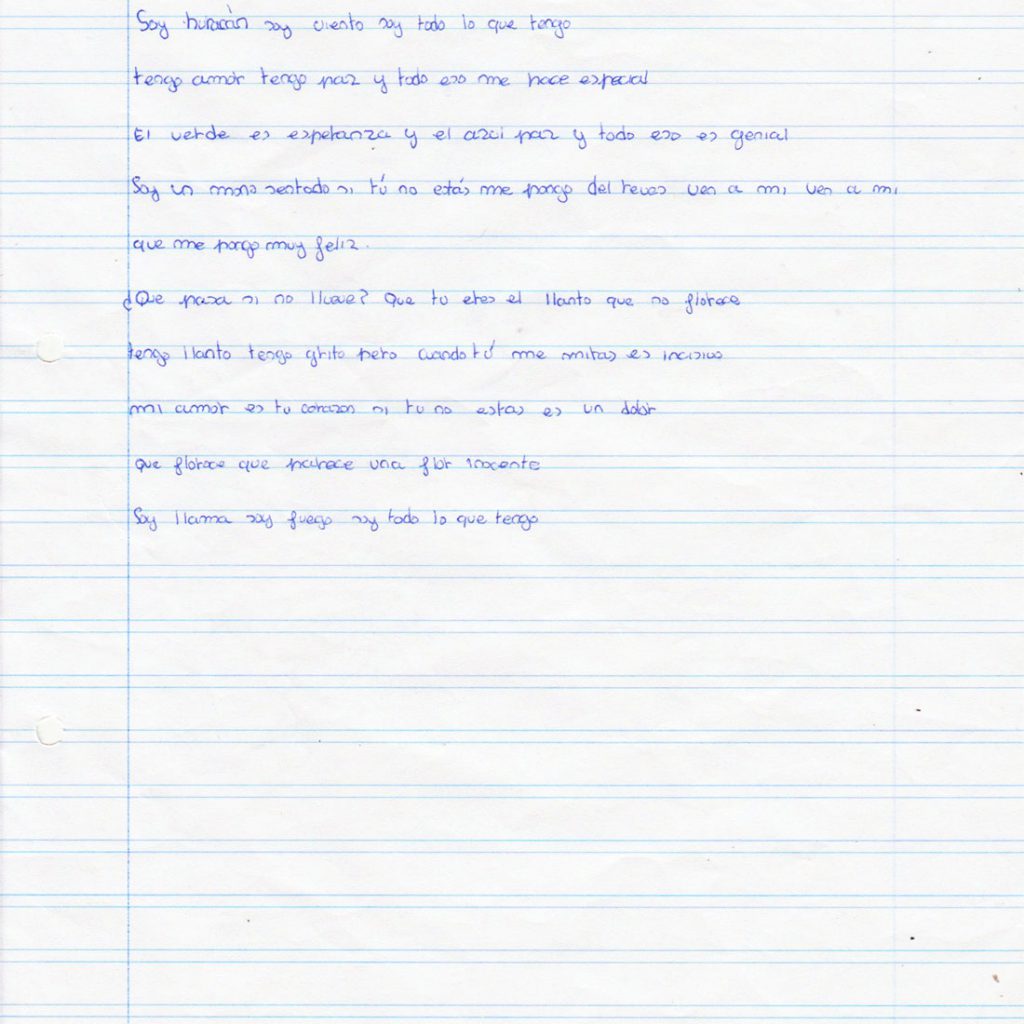 Soy huracán soy cuento soy todo lo que tengo
tengo amor tengo paz y todo eso me hace especial
El verde es esperanza y el azul paz y todo eso es genial
Soy un mono sentado si tú no estás me pongo del reves ven a mi ven a mi
que me pongo muy feliz.
¿Que pasa si no llueve? Que tu eres el llanto que no florece
tengo llanto tengo grito pero cuando tú me miras es incisivo
mi amor es tu corazon si tu no estas es un dolor
que florece que parece una flor inocente
Soy llama soy fuego soy todo lo que tengo